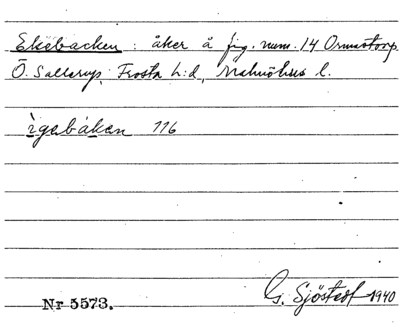 Ekebacken : åker å fig. num. 14 Ormastorp
Ö. Sallerup, Frosta h:d, Malmöhus l.
ìgabàkan 116
G. Sjöstedt 1940
Nr 5573.